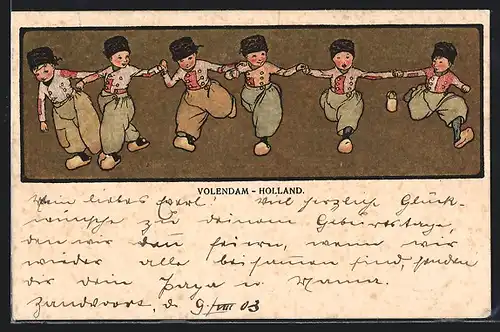 VOLENDAM – HOLLAND.
Mein liebes Karl! Viel herzlich Glück-
wünsche zu deinem Geburtstage,
den wir dan feiern, wenn wir
wieder alle beisamen sind, senden
dir dein Papa u Mama.
Zandvoort, d. 9/VIII 03